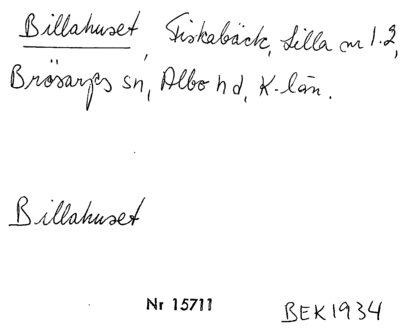 Billahuset, Fiskabäck, Lilla nr 1.2,
Brösarps sn, Albo hd, K-län.
Billahuset
Nr 15711
BEK 1934